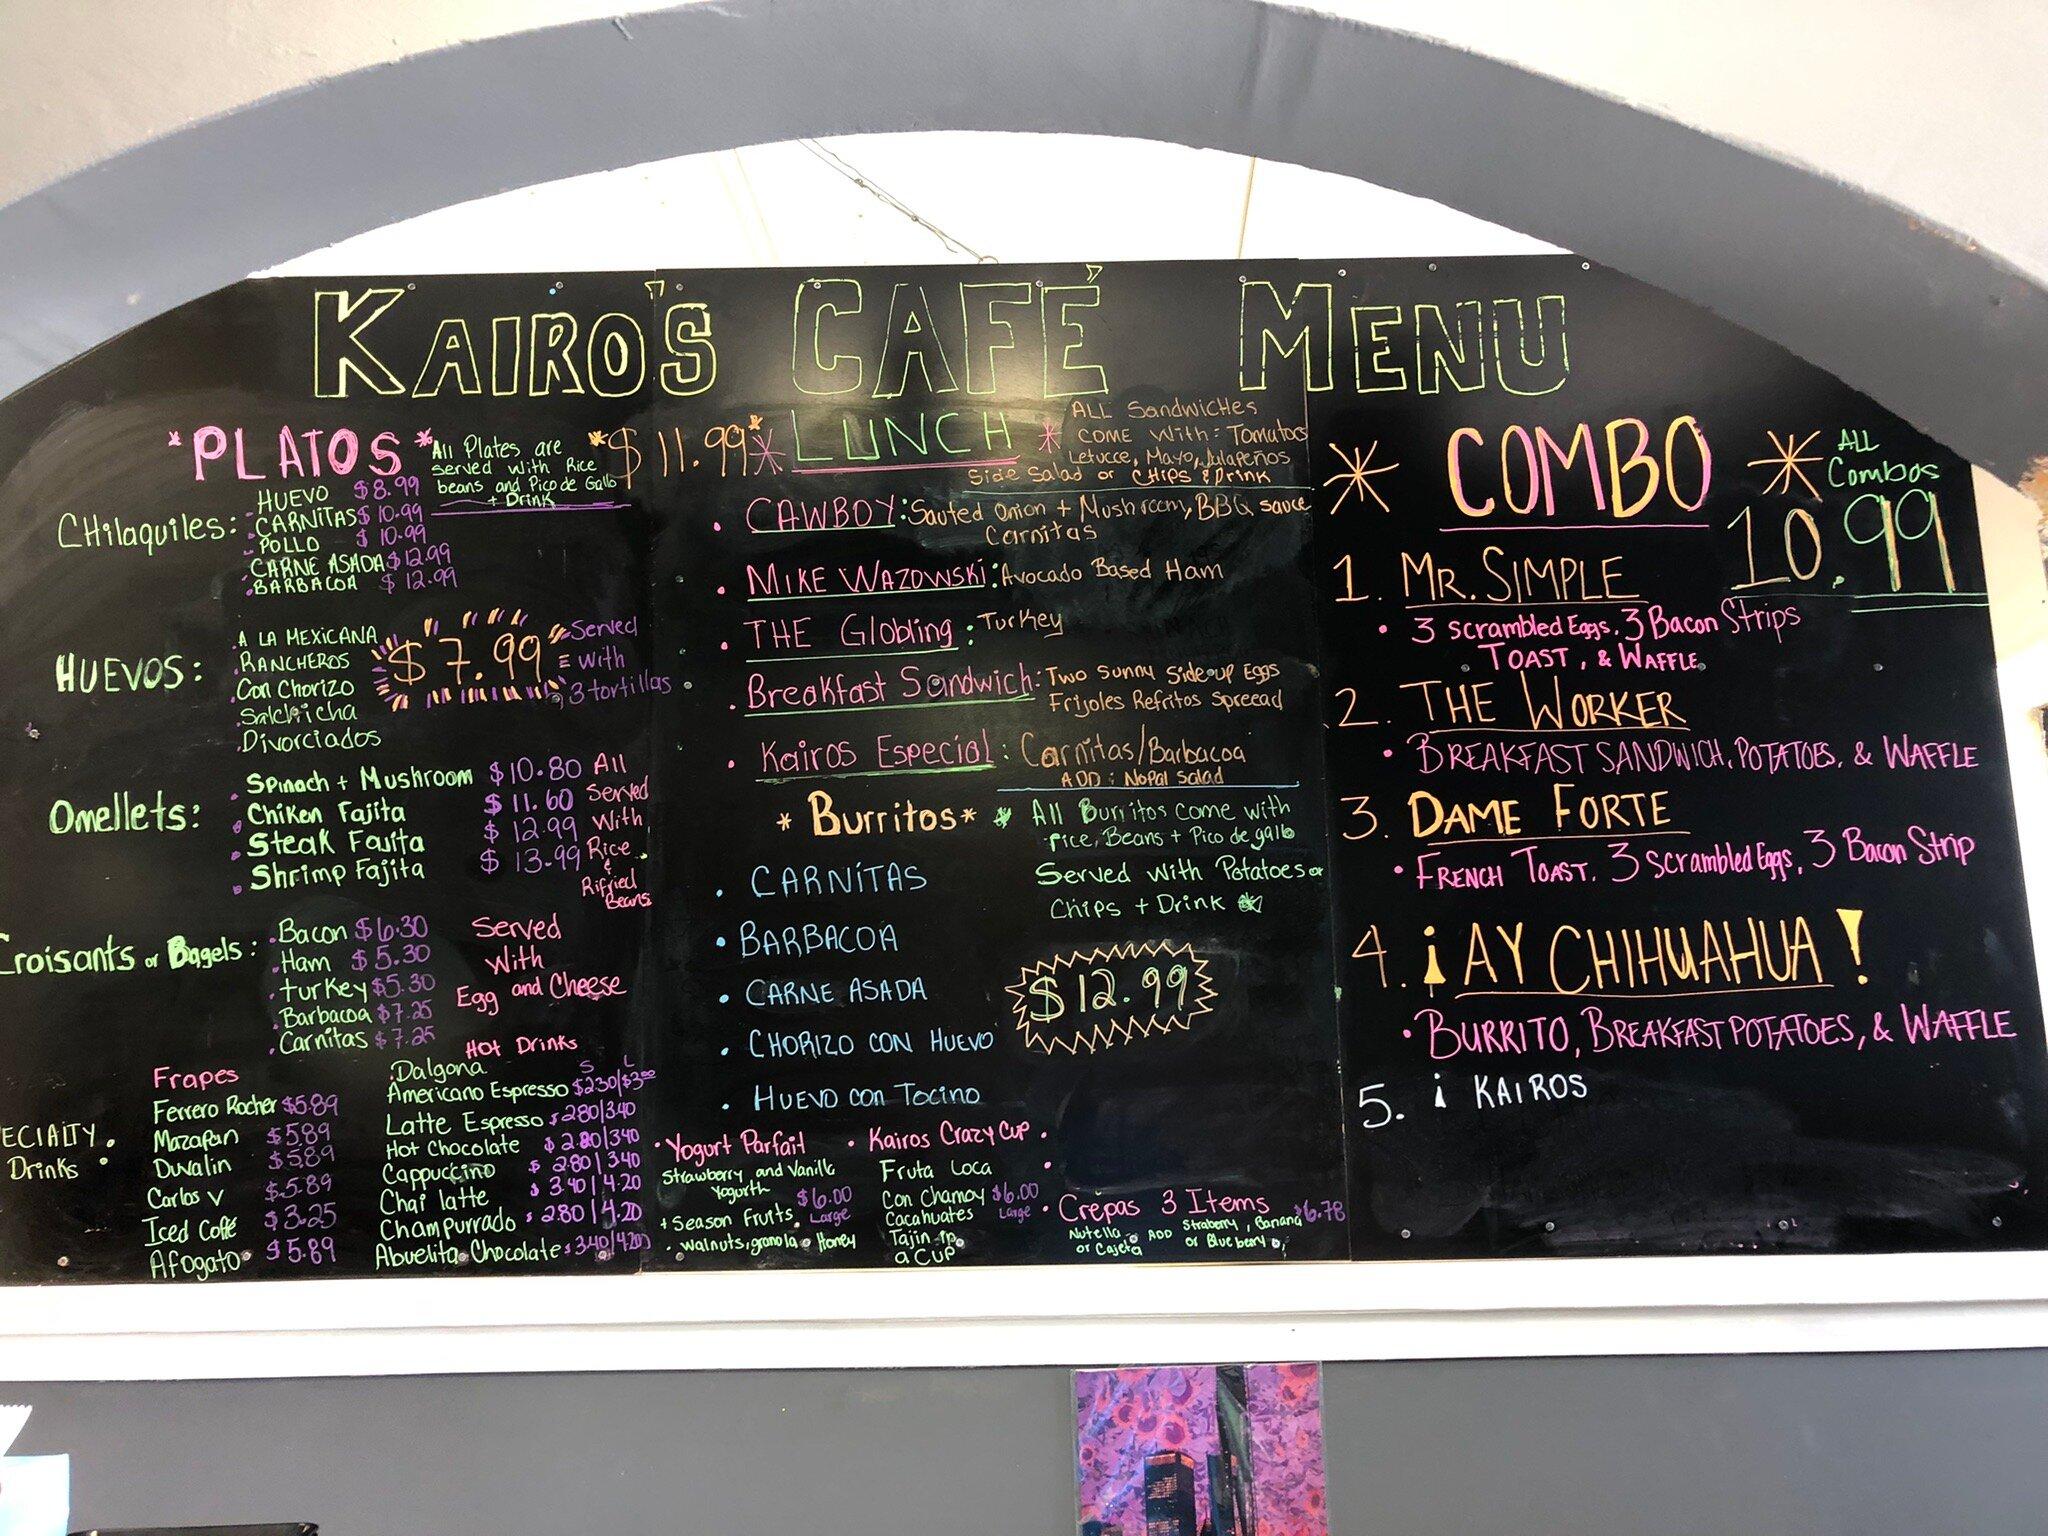 KAIRO'S CAFÉ MENU
*PLATOS*
All Plates are
served with Rice
beans and Pico de Gallo
+ Drink
CHilaquiles:
HUEVO $8.99
CARNITAS $10.99
POLLO $10.99
CARNE ASADA $12.99
BARBACOA $12.99
HUEVOS:
A LA MEXICANA
RANCHEROS
Con Chorizo
Salchicha
Divorciados
$7.99
Served
with
3 tortillas
Omellets:
Spinach + Mushroom $10.80
Chiken Fajita $11.60
Steak Fajita $12.99
Shrimp Fajita $13.99
All
Served
With
Rice
&
Rifried
Beans
Croisants or Bagels:
Bacon $6.30
Ham $5.30
turkey $5.30
Barbacoa $7.25
Carnitas $7.25
Served
With
Egg and Cheese
ECIALTY
Drinks
Frapes
Ferrero Rocher $5.89
Mazapan $5.89
Duvalin $5.89
Carlos V $5.89
Iced Coffe $3.25
Afogato $5.89
Hot Drinks
S L
Dalgona
Americano Espresso $2.30/$3.00
Latte Espresso $2.80/3.40
Hot Chocolate $2.80/3.40
Cappuccino $2.80/3.40
Chai latte $3.40/4.20
Champurrado $2.80/4.20
Abuelita Chocolate $3.40/4.20
*$11.99*
*LUNCH*
ALL Sandwiches
COME With: Tomatoes
Letucce, Mayo, Jalapeños
Side Salad or Chips & Drink
CAWBOY: Sauted Onion + Mushroom, BBQ sauce
Carnitas
MIKE WAZOWSKI: Avocado Based Ham
THE Globling: Turkey
Breakfast Sandwich: Two Sunny Side up Eggs
Frijoles Refritos Spreead
Kairos Especial: Carnitas/Barbacoa
ADD: Nopal Salad
*Burritos*
* All Burritos come with
Rice, Beans + Pico de gallo
Served with Potatoes or
Chips + Drink
CARNÍTAS
BARBACOA
CARNE ASADA
CHORIZO CON HUEVO
HUEVO con Tocino
$12.99
Yogurt Parfait
Strawberry and Vanilla
Yogurth
$6.00
Large
+ Season Fruits
walnuts, granola Honey
Kairos Crazy Cup
Fruta Loca
Con Chamoy $6.00
Cacahuates Large
Tajin in
a Cup
Crepas 3 Items $6.78
Nutella or Cajeta
ADD
Straberry, Banana
or Blueberry
* COMBO *
ALL
Combos
10.99
1. MR. SIMPLE
• 3 scrambled Eggs, 3 Bacon Strips
TOAST, & WAFFLE
2. THE WORKER
• BREAKFAST SANDWICH, POTATOES, & WAFFLE
3. DAME FORTE
• FRENCH TOAST, 3 Scrambled Eggs, 3 Bacon Strip
4. ¡AY CHIHUAHUA!
• BURRITO, BREAKFAST POTATOES, & WAFFLE
5. ¡ KAIROS